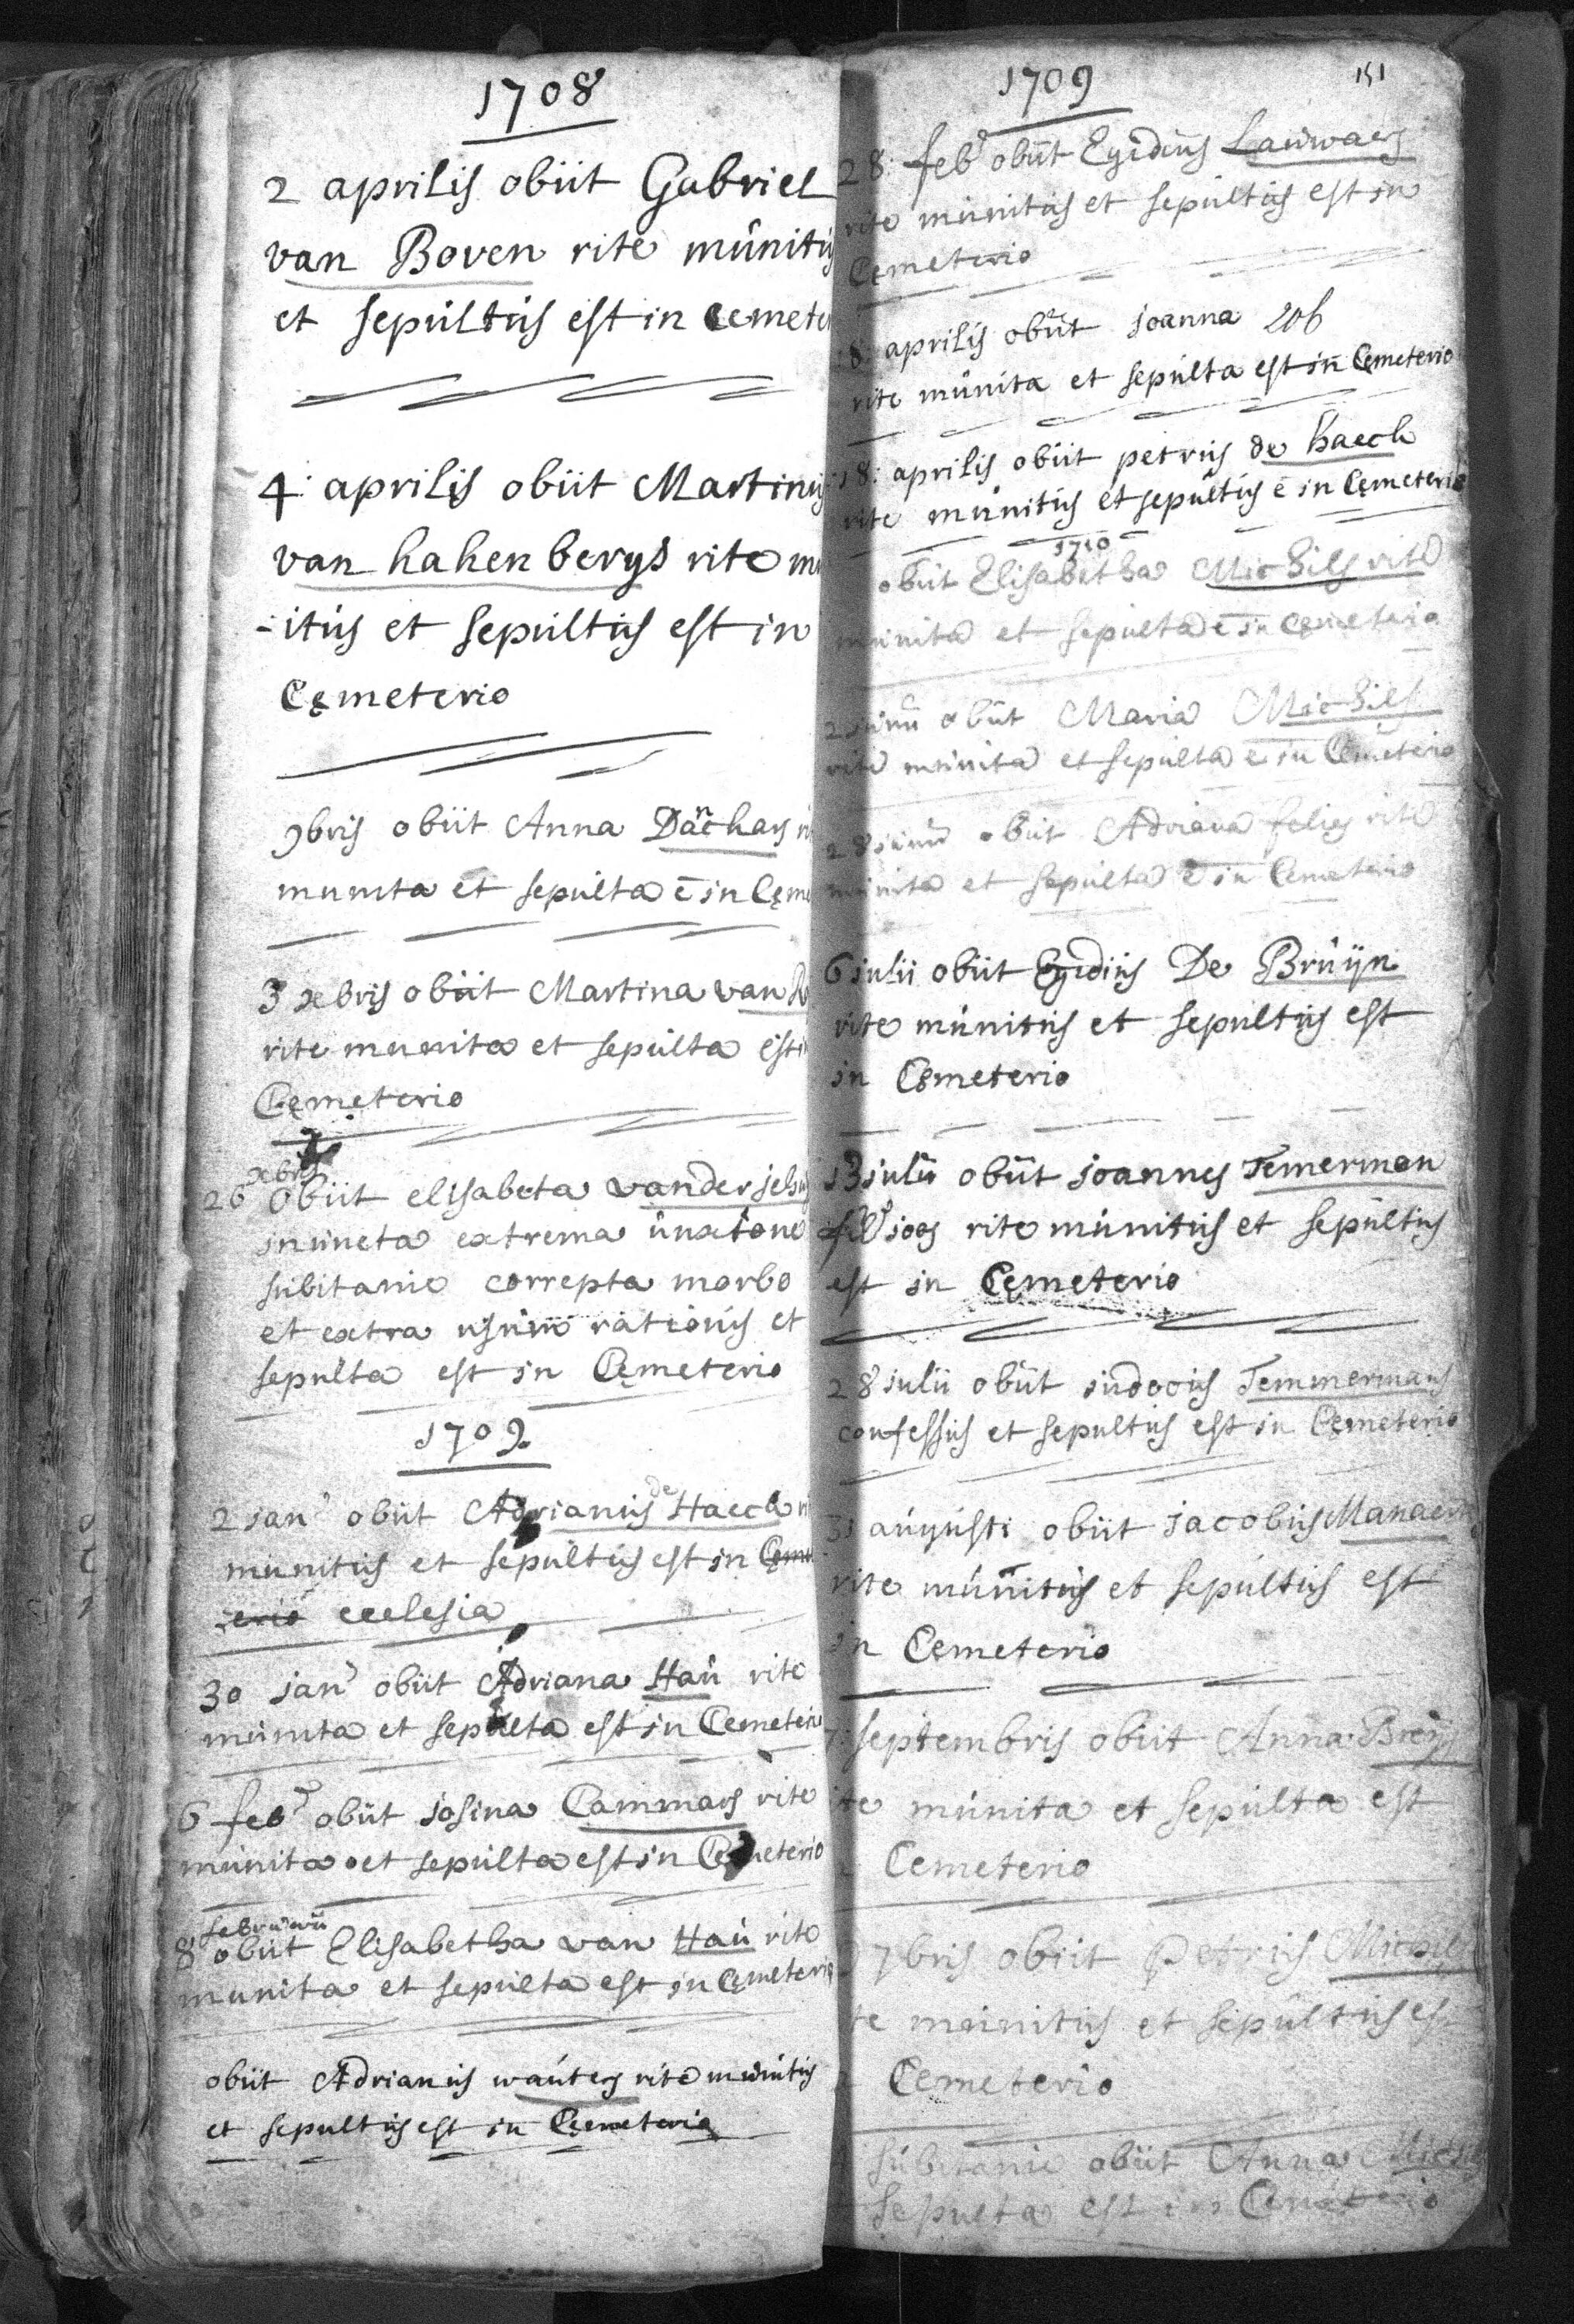 1708
2 aprilis obiit Gabriel
van Boven rite munitus
et sepultus est in cemete
4: aprilis obiit Martinus
van hahenbergs rite mu
-itus et sepultus est in
Cęmeterio
9bris obiit Anna Danchars ri
munita et sepulta ē in Cęme
3 xbris obiit Martina van
rite munita et sepulta est i
Cęmeterio
xbris
26 obiit elisabeta vander
inuncta extrema unxione
subitanie correpta morbo
et extra usum rationis et
sepulta est in Cęmeterio
1709
2 jan obiit Adrianus de Haech ri
munitus et sepultus est in Cęme
terio ecclesia
30 jan obiit Adriana Hau rite
munita et sepulta est in Cemeterio
6 feb obiit josina Cammars rite
munita et sepulta est in Cemeterio
februarii
8 obiit Elisabetha van Hau rite
munita et sepulta est in Cęmeterio
obiit Adrianus wauters rite munitus
et sepultus est in Cęmeterio
1709
151
28: feb obiit Egidius Lauwaers
rite munitus et sepultus est in
Cęmeterio
8: aprilis obiit joanna
rite munita et sepulta est in Cęmeterio
18: aprilis obiit petrus de haech
rite munitus et sepultus ē in Cęmeterio
1710
obiit Elisabetha Michils rite
munita et sepulta ē in Cęmeterio
2 junii obiit Maria Michils
rite munita et sepulta ē in Cemeterio
28 junii obiit Adriana felies rite
munita et sepulta ē in Cemeterio
6 julii obiit Egidius De Bruijn
rite munitus et sepultus est
in Cęmeterio
13 julii obiit joannes Temerman
fil joos rite munitus et sepultus
est in Cęmeterio
28 julii obiit judocus Temmermans
confessus et sepultus est in Cęmeterio
31 augusti obiit jacobus Manaert
rite munitus et sepultus est
in Cęmeterio
7: septembris obiit Anna
ite munita et sepulta est
Cemeterio
7bris obiit Petrus Michils
te munitus et sepultus est
Cemeterio
subitanie obiit Anna
sepulta est in Cemeterio